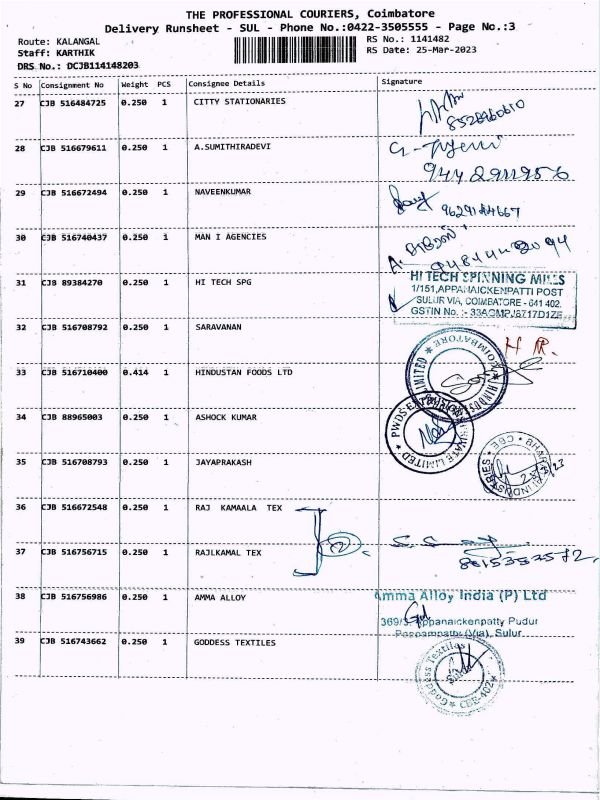 THE PROFESSIONAL COURIERS, Coimbatore
Delivery Runsheet - SUL - Phone No.:0422-3505555 - Page No.:3
Route: KALANGAL
Staff: KARTHIK
DRS No.: DCJB114148203
RS No.: 1141482
RS Date: 25-Mar-2023
S No Consignment No Weight PCS Consignee Details Signature
27 CJB 516484725 0.250 1 CITTY STATIONARIES
28 CJB 516679611 0.250 1 A.SUMITHIRADEVI
29 CJB 516672494 0.250 1 NAVEENKUMAR
30 CJB 516740437 0.250 1 MAN I AGENCIES
31 CJB 89384270 0.250 1 HI TECH SPG
HI TECH SPINNING MILLS
1/151, APPANAICKENPATTI POST
SULUR VIA, COIMBATORE - 641 402.
GSTIN No. :-
32 CJB 516708792 0.250 1 SARAVANAN
COIMBATORE
33 CJB 516710400 0.414 1 HINDUSTAN FOODS LTD
34 CJB 88965003 0.250 1 ASHOCK KUMAR
PRIVATE LIMITED
35 CJB 516708793 0.250 1 JAYAPRAKASH
INDUSTRIES CBE
36 CJB 516672548 0.250 1 RAJ KAMAALA TEX
37 CJB 516756715 0.250 1 RAJLKAMAL TEX
38 CJB 516756986 0.250 1 AMMA ALLOY
Amma Alloy India (P) Ltd
Appanaickenpatty Pudur
Sulur
39 CJB 516743662 0.250 1 GODDESS TEXTILES
Goddess Textiles
CBE-402